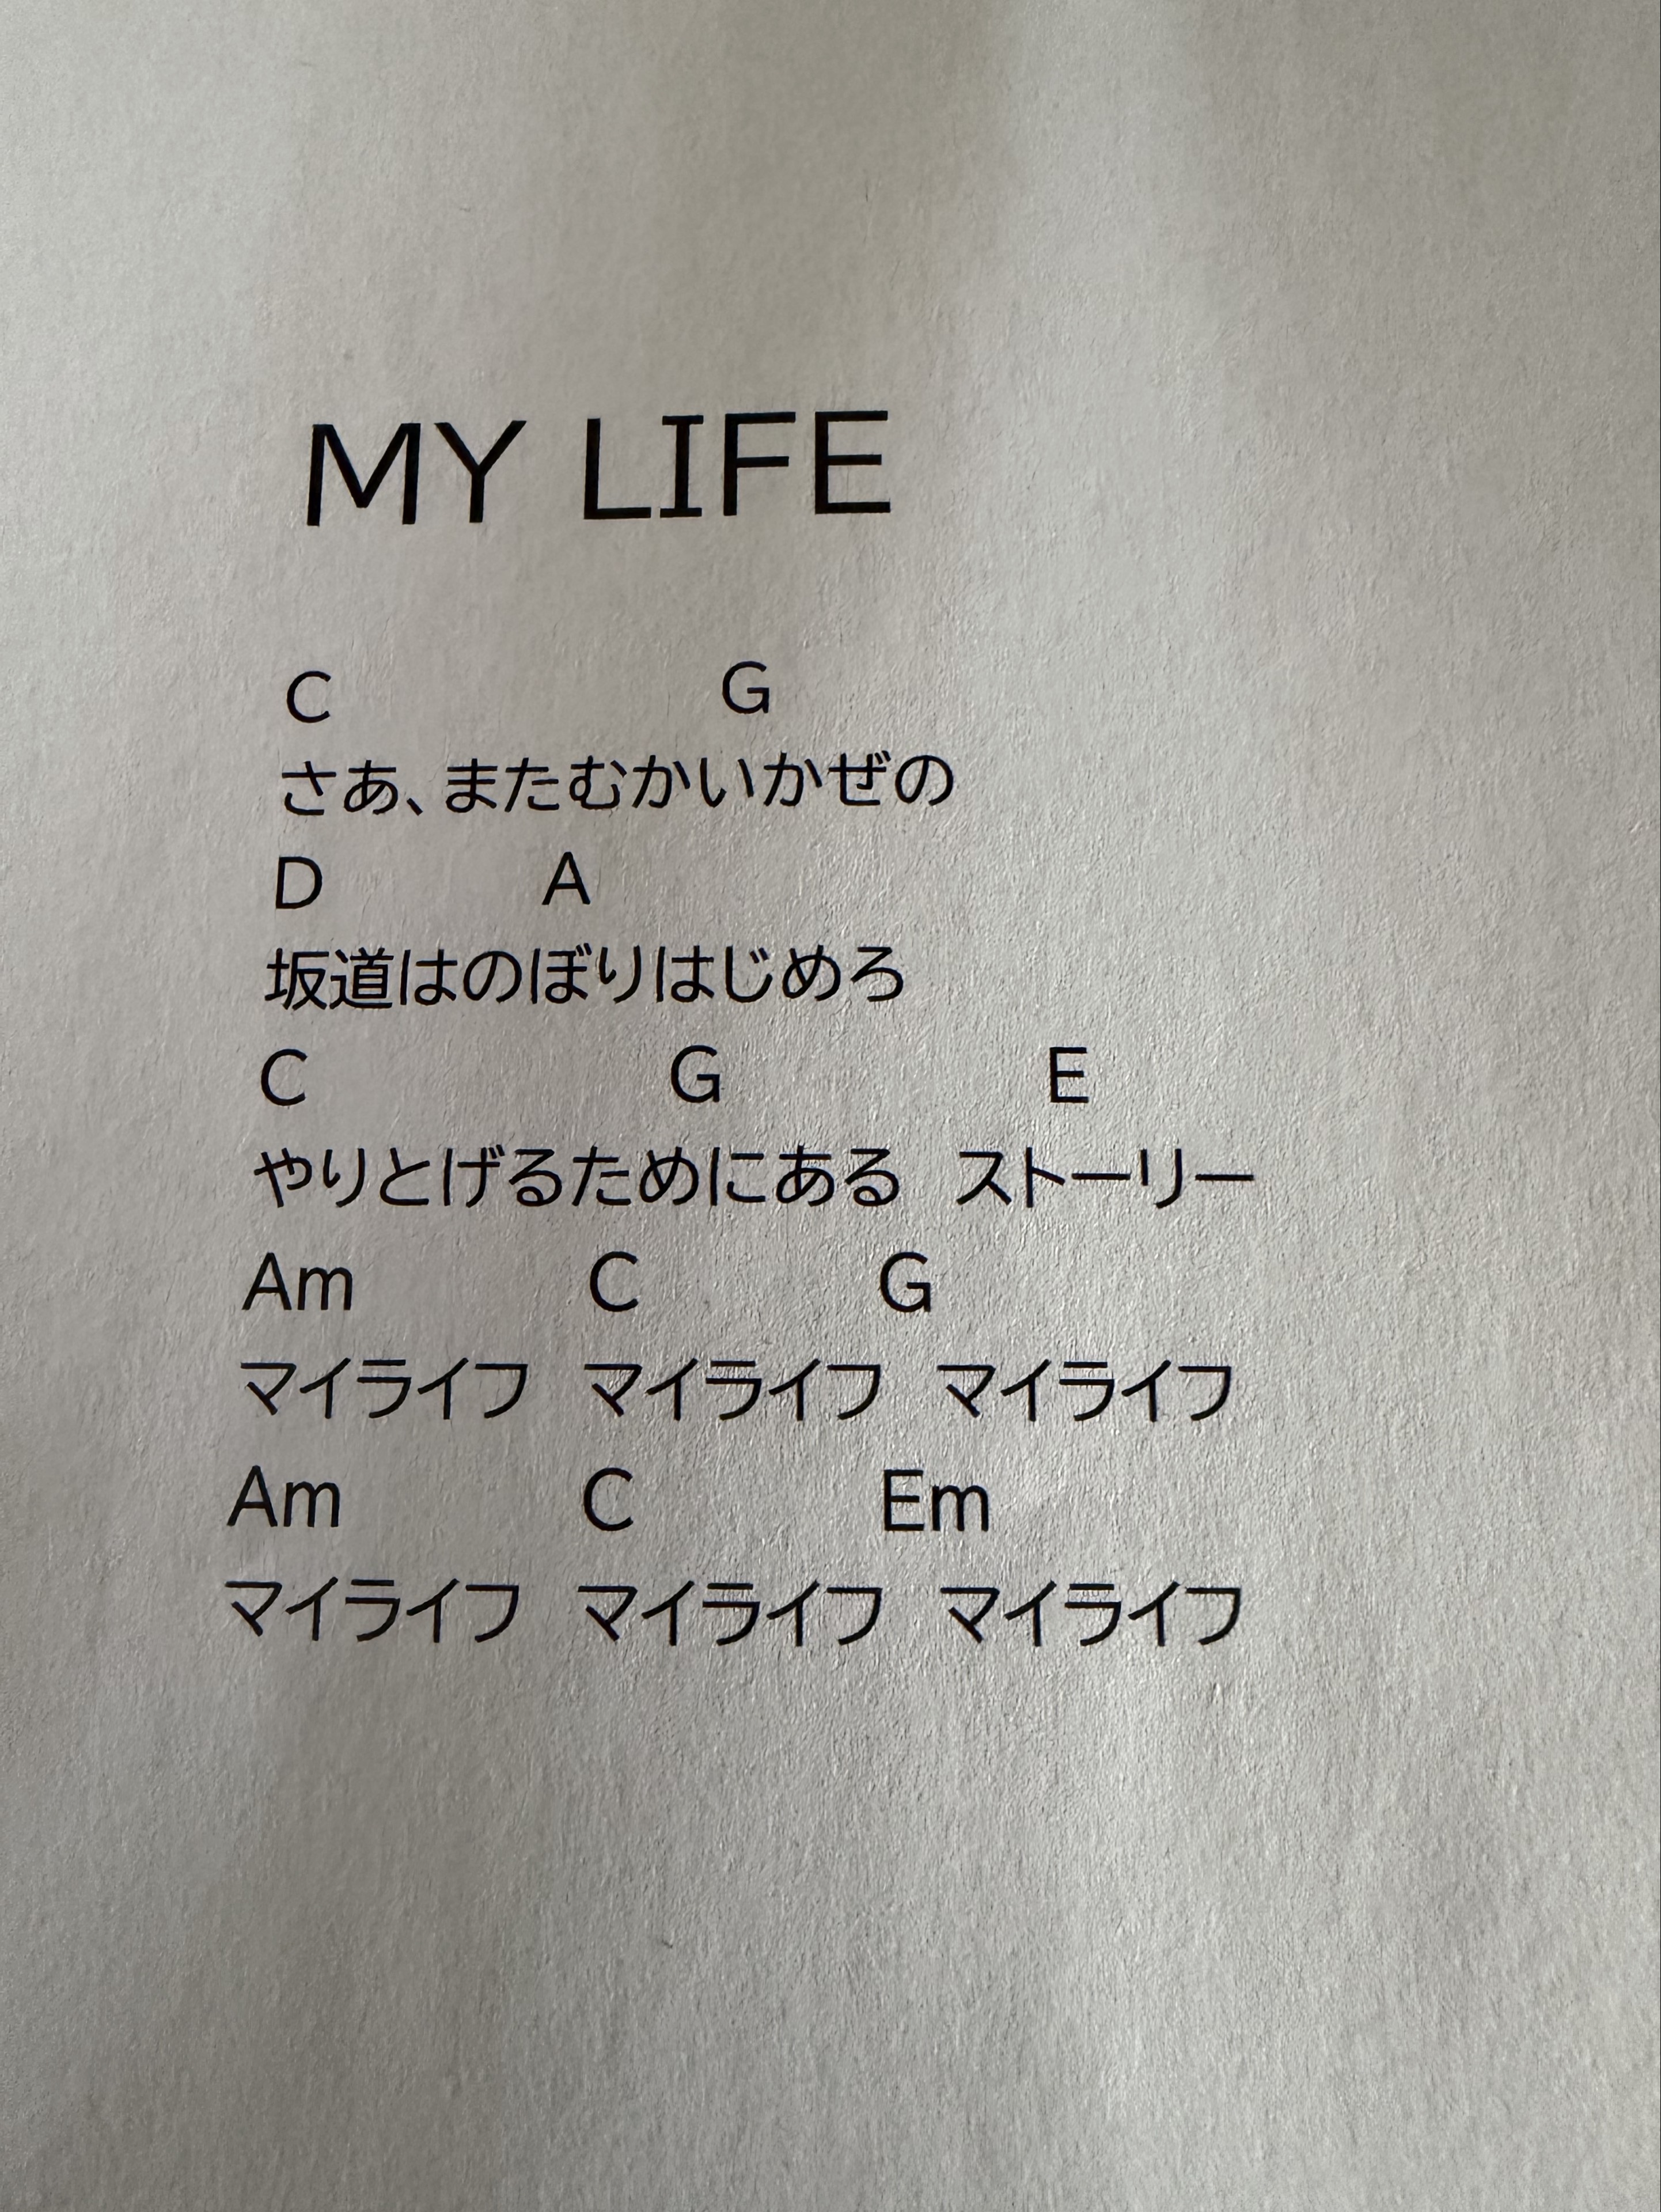 MY LIFE
C G
さあ、またむかいかぜの
D A
坂道はのぼりはじめろ
C G E
やりとげるためにある ストーリー
Am C G
マイライフ マイライフ マイライフ
Am C Em
マイライフ マイライフ マイライフ